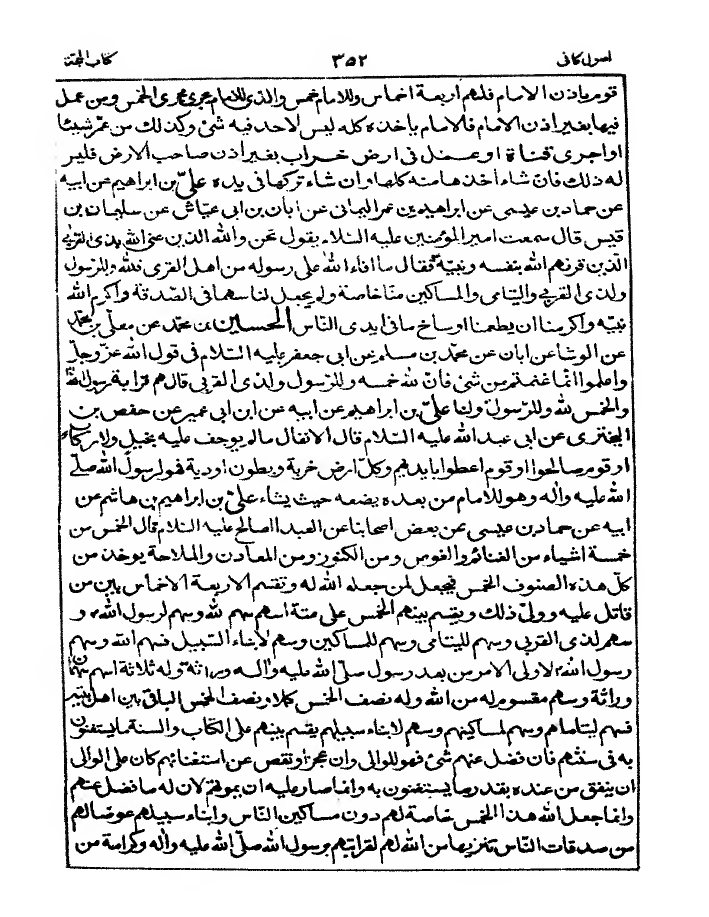 اصول كافى ٣٥٢ كتاب الحجة
قوم باذن الامام فلهم اربعة اخماس وللامام خمس والذى للامام يجرى مجرى الخمس ومن عمل
فيها بغير اذن الامام فالامام ياخذه كله ليس لاحد فيه شئ وكذلك من عمر شيئا
او اجرى قناة او عمل فى ارض خراب بغير اذن صاحب الارض فليس
له ذلك فان شاء اخذها منه كلها وان شاء تركها فى يده على بن ابراهيم عن ابيه
عن حماد بن عيسى عن ابراهيم بن عمر اليمانى عن ابان بن ابى عياش عن سليمان بن
قيس قال سمعت امير المؤمنين عليه السلام يقول نحن والله الذين عنى الله بذى القربى
الذين قرنهم الله بنفسه ونبيه فقال ما افاء الله على رسوله من اهل القرى فلله وللرسول
ولذى القربى واليتامى والمساكين منا خاصة ولم يجعل لنا سهما فى الصدقة واكرم الله
نبيه واكرمنا ان يطعمنا اوساخ ما فى ايدى الناس الحسين بن محمد عن معلى بن محمد
عن الوشا عن ابان عن محمد بن مسلم عن ابى جعفر عليه السلام فى قول الله عز وجل
واعلموا انما غنمتم من شئ فان لله خمسه وللرسول ولذى القربى قال هم قرابة رسول الله
والخمس لله وللرسول ولنا على بن ابراهيم عن ابيه عن ابن ابى عمير عن حفص بن
البخترى عن ابى عبد الله عليه السلام قال الانفال ما لم يوجف عليه بخيل ولا ركاب
او قوم صالحوا او قوم اعطوا بايديهم وكل ارض خربة وبطون اودية فهو لرسول الله صلى
الله عليه واله وهو للامام من بعده يضعه حيث يشاء على بن ابراهيم بن هاشم عن
ابيه عن حماد بن عيسى عن بعض اصحابنا عن العبد الصالح عليه السلام قال الخمس من
خمسة اشياء من الغنائم والغوص ومن الكنوز ومن المعادن والملاحة يوخذ من
كل هذه الصنوف الخمس فيجعل لمن جعله الله له وتقسم الاربعة الاخماس بين من
قاتل عليه وولى ذلك ويقسم بينهم الخمس على ستة اسهم سهم لله وسهم لرسول الله و
سهم لذى القربى وسهم لليتامى وسهم للمساكين وسهم لابناء السبيل فسهم الله وسهم
رسول الله لاولى الامر من بعد رسول صلى الله عليه واله وراثة وله ثلاثة اسهم سهمان
وراثة وسهم مقسوم له من الله وله نصف الخمس كملا ونصف الخمس الباقى بين اهل بيته
فسهم ليتاماهم وسهم لمساكينهم وسهم لابناء سبيلهم يقسم بينهم على الكتاب والسنة ما يستغنون
به فى سنتهم فان فضل عنهم شئ فهو للوالى وان عجز او نقص عن استغنائهم كان على الوالى
ان ينفق من عنده بقدر ما يستغنون به وانما صار عليه ان يمونهم لان له ما فضل عنهم
وانما جعل الله هذا الخمس خاصة لهم دون مساكين الناس وابناء سبيلهم عوضا لهم
من صدقات الناس تنزيها من الله لهم لقرابتهم برسول الله صلى الله عليه واله وكرامة من